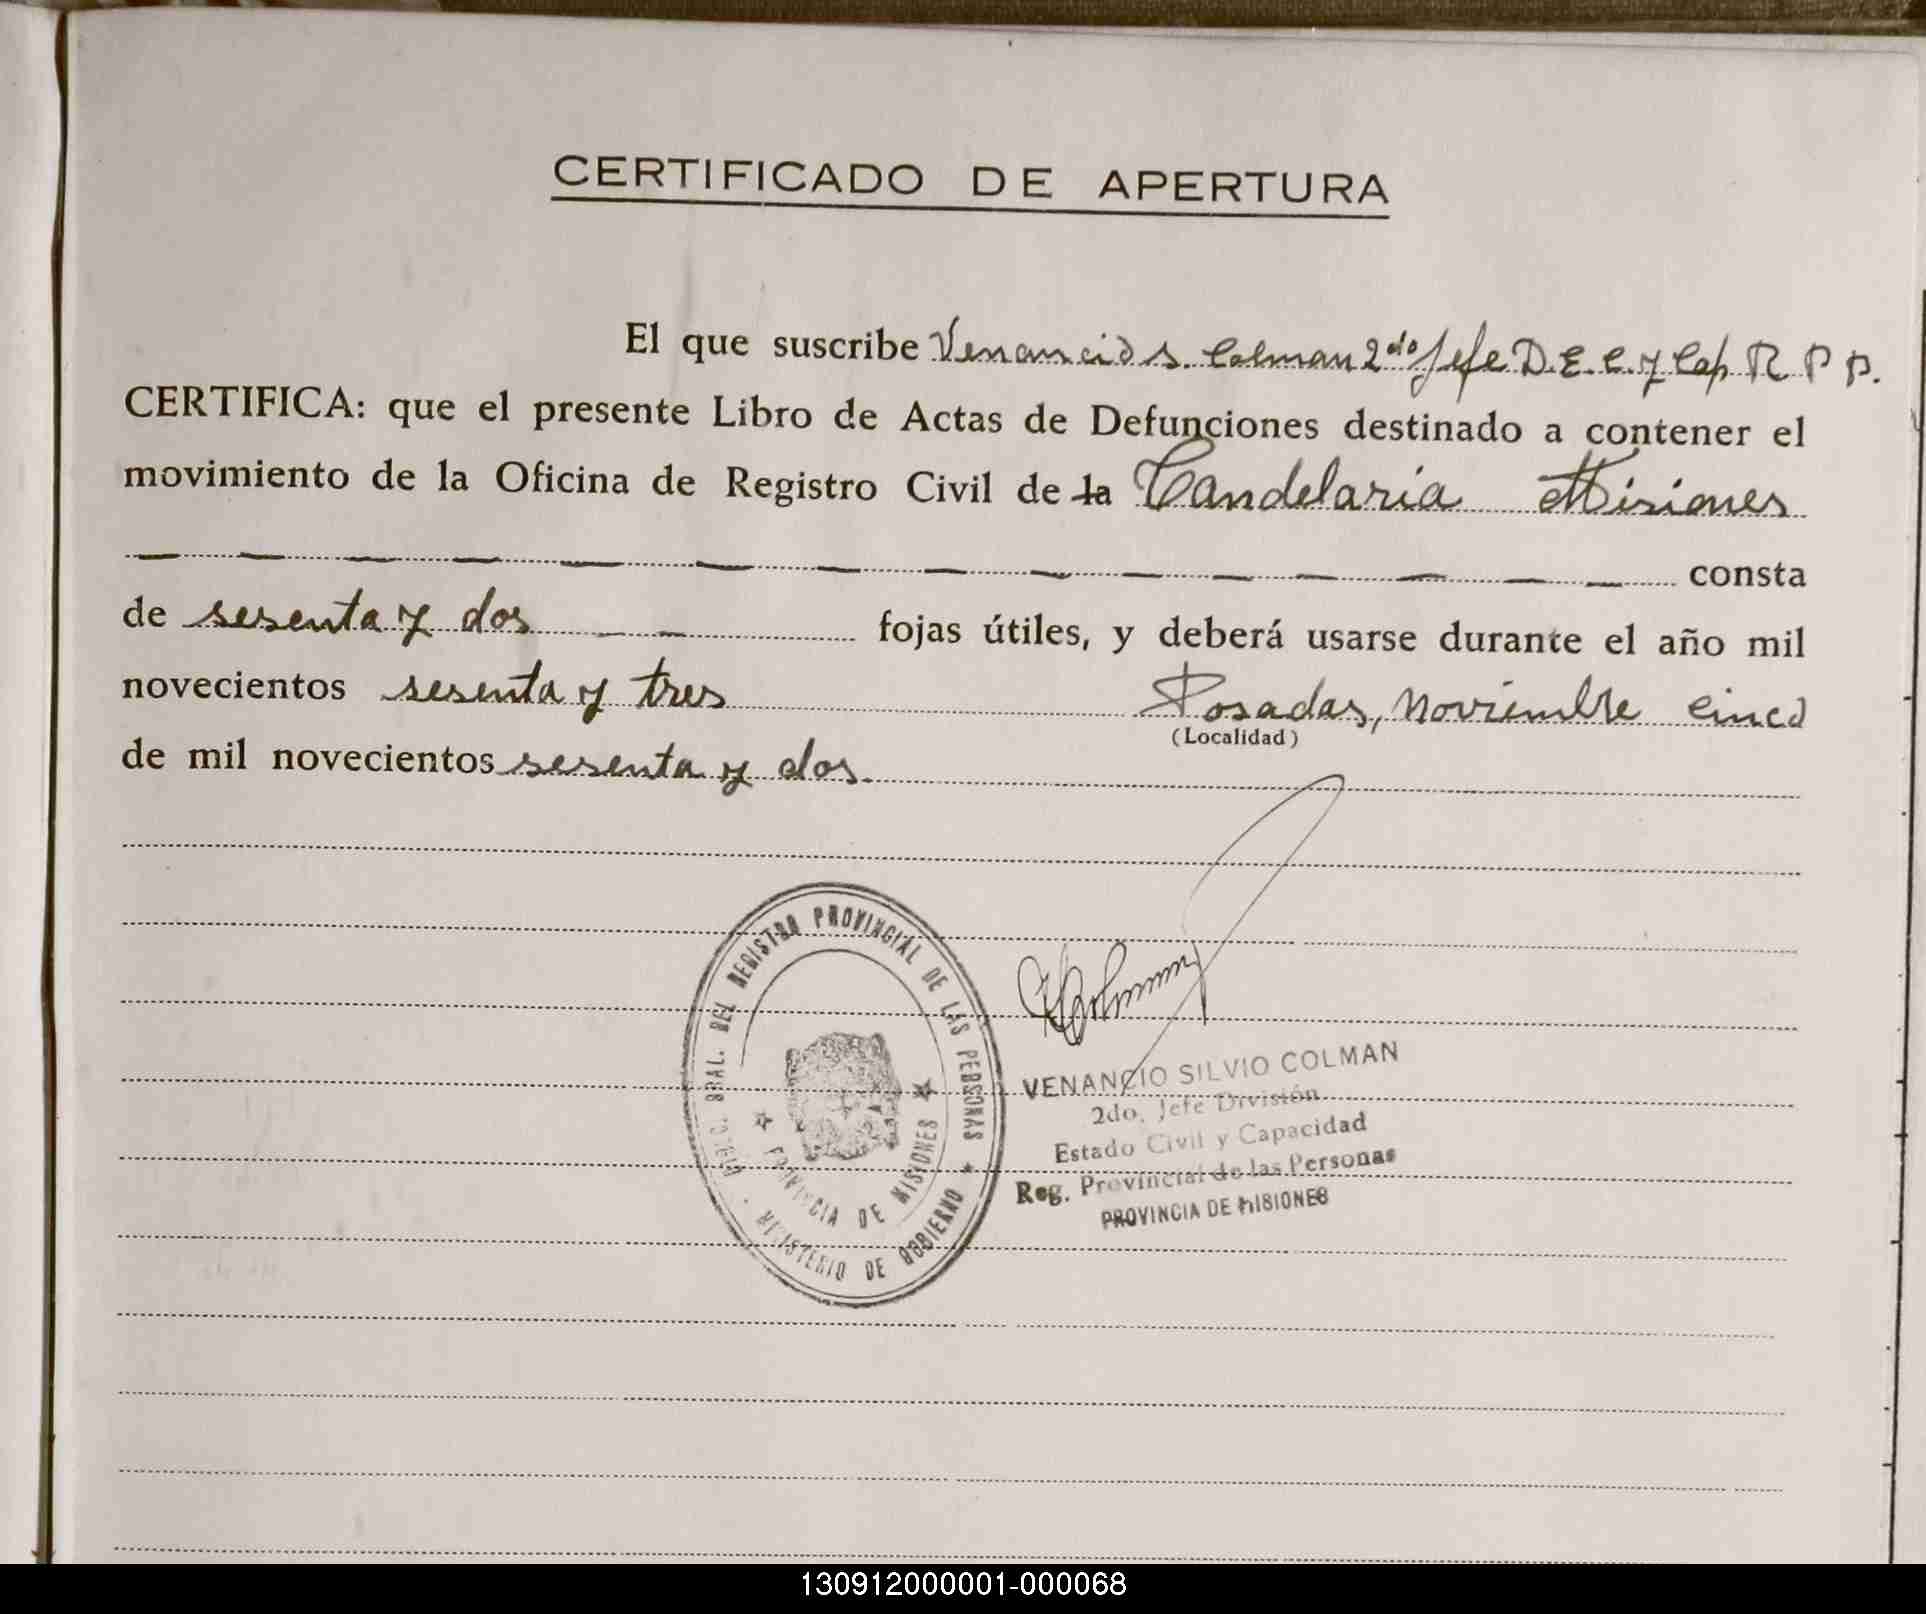 CERTIFICADO DE APERTURA
El que suscribe Venancio S. Colman 2do Jefe D.E.C. y Cap R P P.
CERTIFICA: que el presente Libro de Actas de Defunciones destinado a contener el
movimiento de la Oficina de Registro Civil de la Candelaria Misiones
consta
de sesenta y dos fojas útiles, y deberá usarse durante el año mil
novecientos sesenta y tres Posadas, Noviembre cinco
(Localidad)
de mil novecientos sesenta y dos.
GRAL. DEL REGISTRO PROVINCIAL DE LAS PERSONAS
PROVINCIA DE MISIONES
MINISTERIO DE GOBIERNO
VColman
VENANCIO SILVIO COLMAN
2do. Jefe División
Estado Civil y Capacidad
Reg. Provincial de las Personas
PROVINCIA DE MISIONES
130912000001-000068